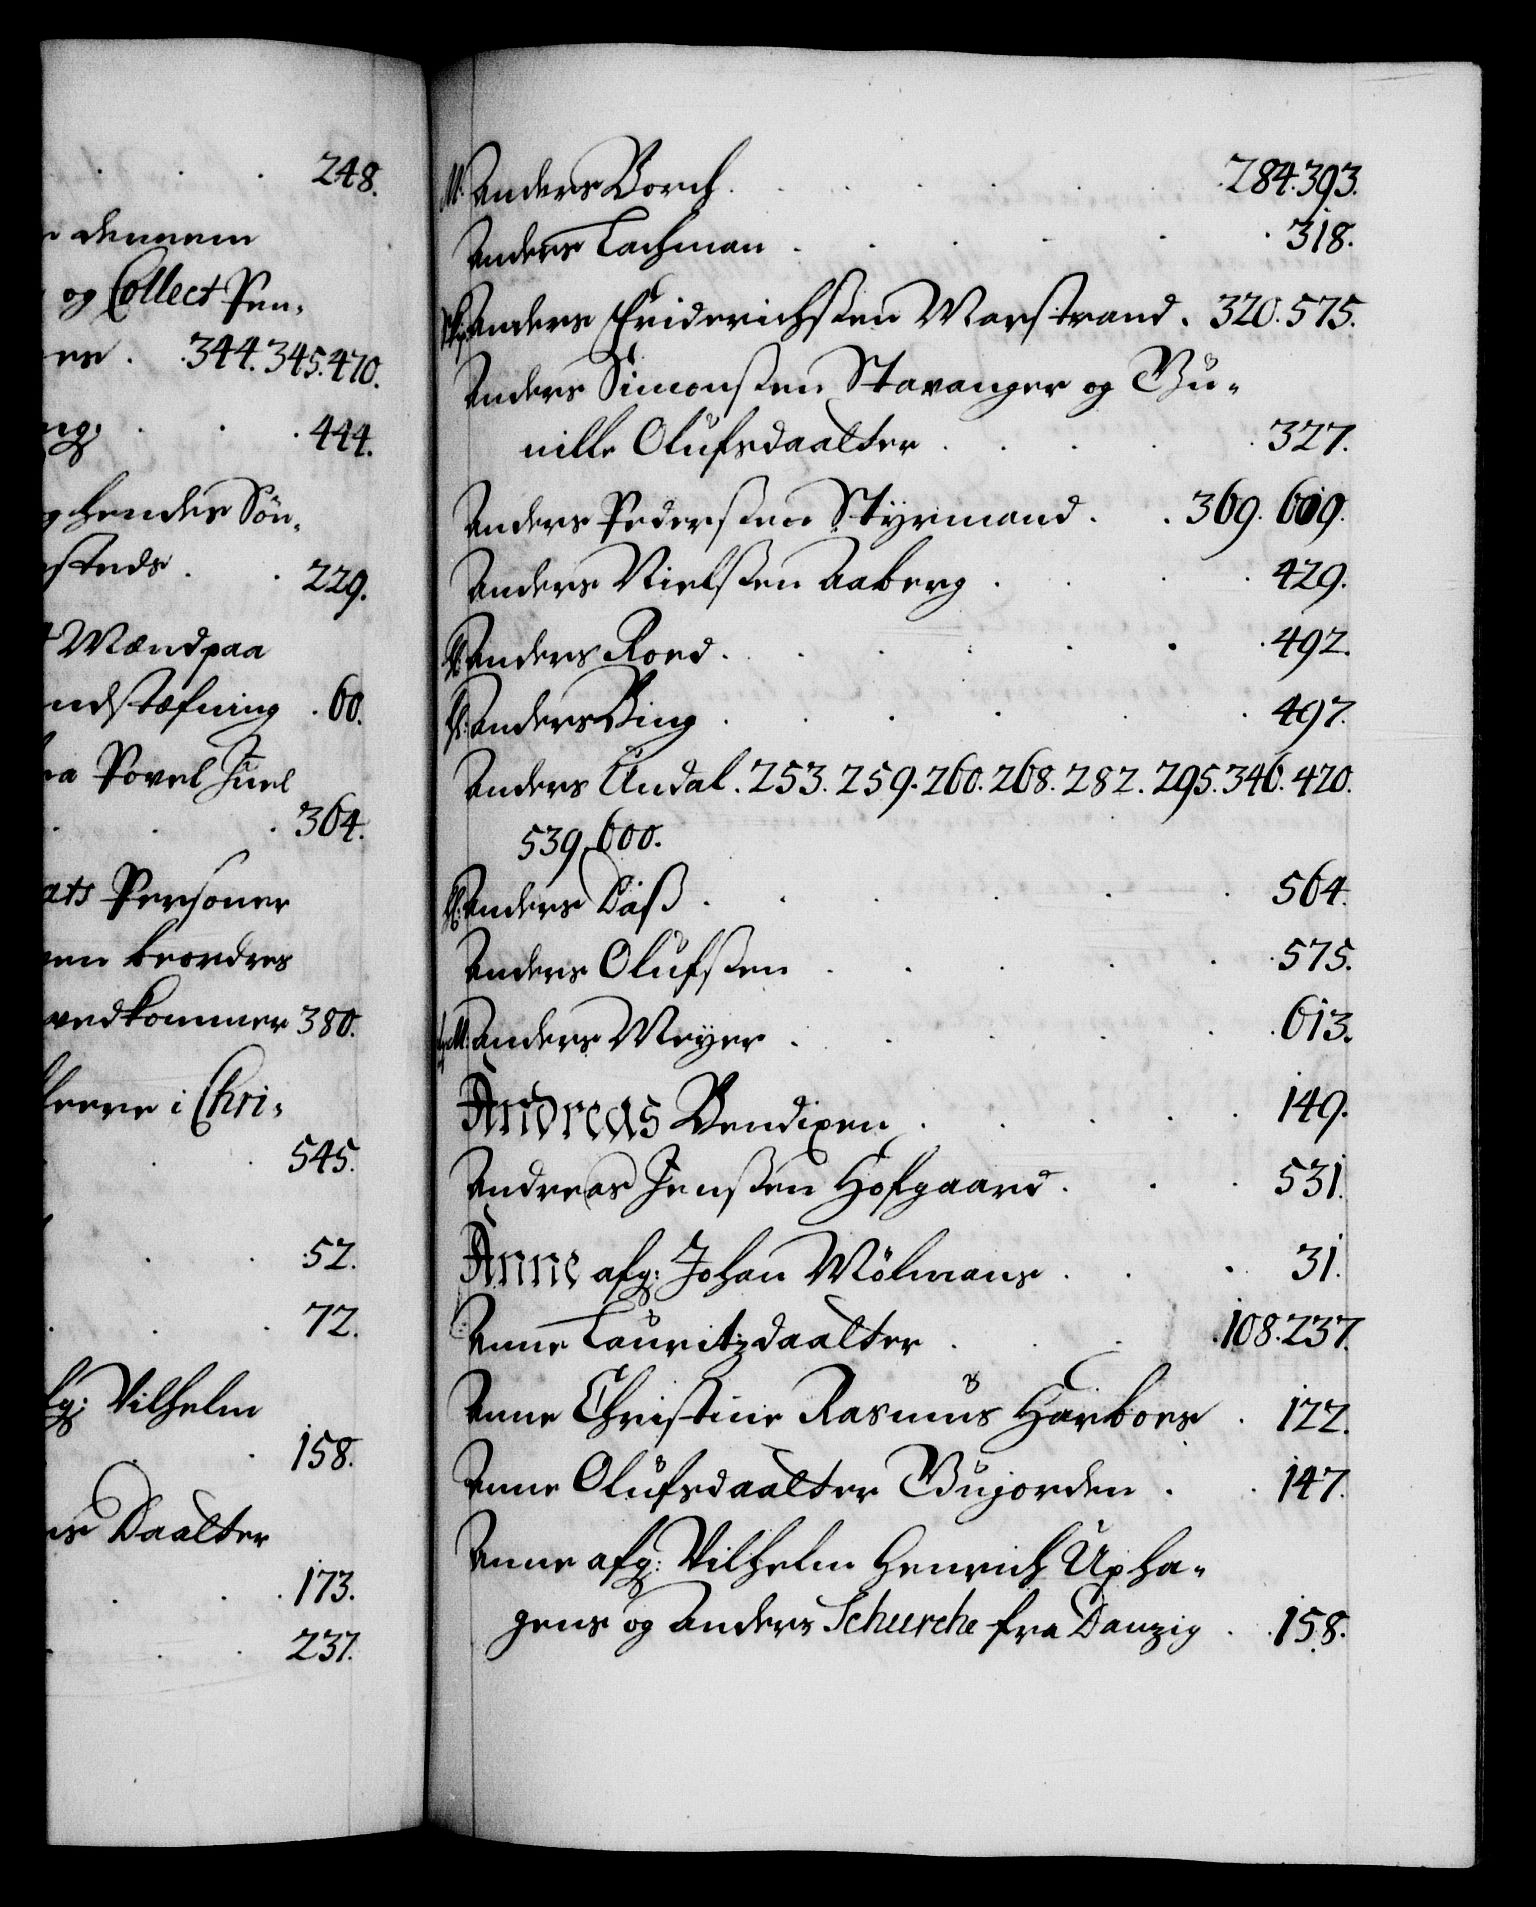 248.
dennem
og Collect Pen-
344. 345. 470.
444.
hendes Søn-
steds. 229.
Mænd paa
ndstæfning. 60.
Povel Juel
364.
ats Personer
beordres
vedkommer 380.
i Chri-
545.
52.
72.
Vilhelm
158.
Daatter
173.
237.
M. Anders Borch. 284. 393.
Anders Lachman. 318.
Anders Friderichsøen Marstrand. 320. 575.
Anders Simonsøen Stavanger og Gu-
nille Olufsdaatter. 327.
Anders Pedersøen Styrmand. 369. 609.
Anders Nielsøen Aaberg. 429.
Anders Roed. 492.
Anders Bing. 497.
Anders Undal. 253. 259. 260. 268. 282. 295. 346. 420.
539. 600.
Anders Daß. 564.
Anders Olufsøen. 575.
Anders Meyer. 613.
Andreas Bendixen. 149.
Andreas Jensøen Hofgaard. 531.
Anne afg: Johan Mølmans. 31.
Anne Lauritzdaatter. 108. 237.
Anne Christine Rasmus Harboes. 122.
Anne Olufsdaatter Gujorden. 147.
Anne afg: Vilhelm Henrich Upha-
gens og Anders Schursche fra Danzig. 158.